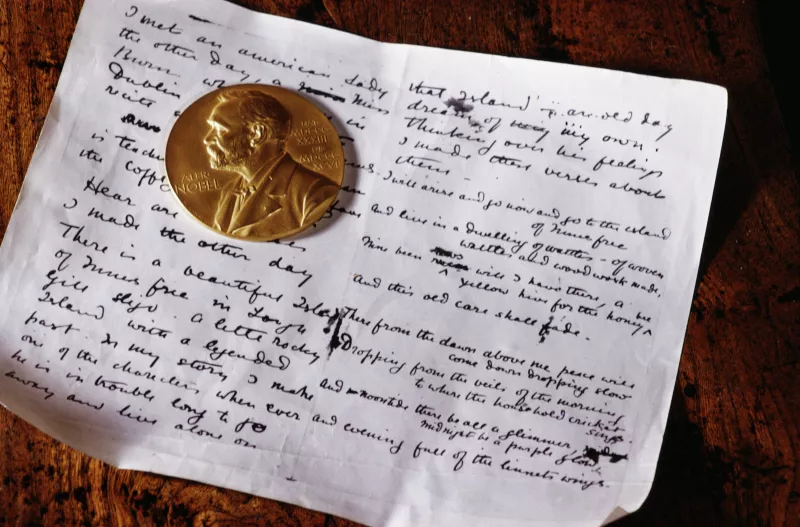 I met an american Lady
the other day, a Miss
Dublin
in
visits
is
the
Hear are
I made the other day
There is a beautiful Island
of Innis free in Lough
Gill Sligo. A little rocky
Island with a legended
past. In my story I make
one of the charecters when ever
he is in trouble long to go
away and live alone on
ALFR·
NOBEL
NAT·
MDCCC
XXXIII
OB·
MDCCC
XCVI
that Island – an old day
dream of my own.
Thinking over his feelings
I made these verses about
them –
I will arise and go now and go to the island
of Innis free
and live in a dwelling of wattles – of woven
wattles and wood work made,
Nine bean rows will I have there, a
yellow hive for the honey
And this old care shall fade.
There from the dawn above me peace will
come down dropping slow
Dropping from the veils of the morning
to where the household cricket
sings.
and noontide there be all a glimmer,
midnight be a purple glow,
and evening full of the linnets wings.